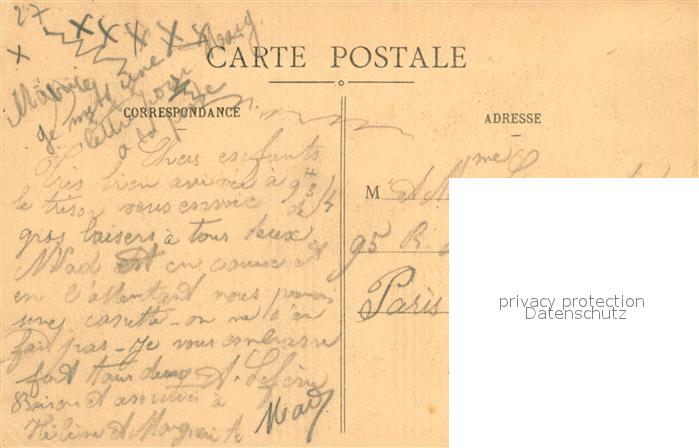 27
x x x x x x
CARTE POSTALE
Maurice
je mets une
lettre pour
à la poste
CORRESPONDANCE
ADRESSE
Chers enfants
Très bien arrivée à 9h 3/4
le trésor vous envoie de
gros baisers à tous deux
est en course et
en l'attendant nous prenons
une canette - on ne s'en
fait pas - je vous embrasse
fort tous deux A. Lefèvre
Baisers et amitiés à
Hélène et Marguerite
M et Mme
95 R.
Paris
privacy protection
Datenschutz